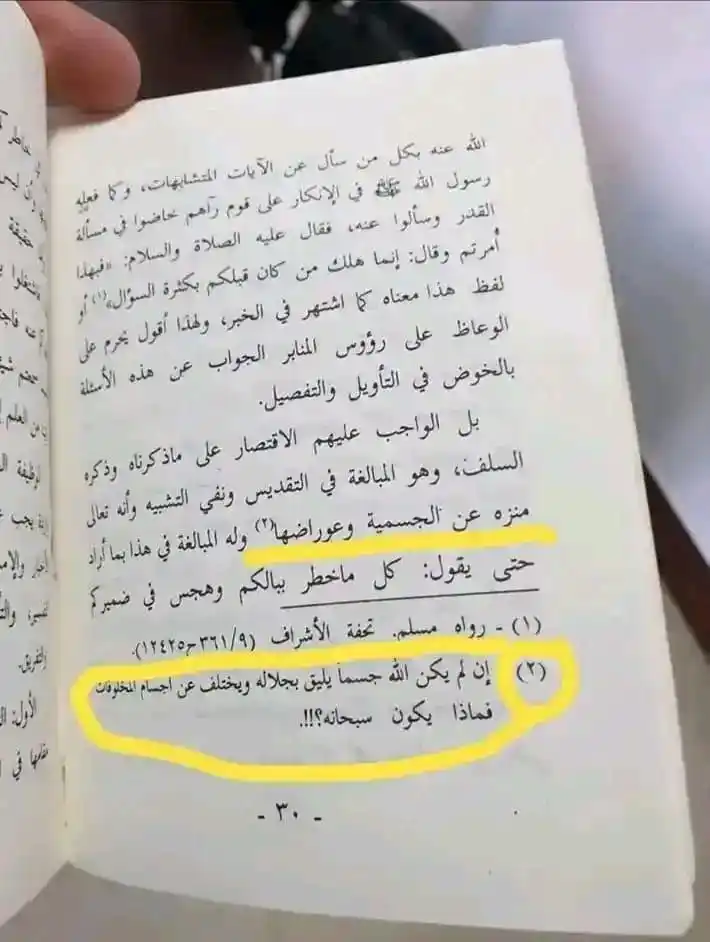 الله عنه بكل من سأل عن الآيات المتشابهات، وكما فعله
رسول الله ﷺ في الإنكار على قوم رآهم خاضوا في مسألة
القدر وسألوا عنه، فقال عليه الصلاة والسلام: «فبهذا
أمرتم وقال: إنما هلك من كان قبلكم بكثرة السؤال»(١) أو
لفظ هذا معناه كما اشتهر في الخبر، ولهذا أقول يحرم على
الوعاظ على رؤوس المنابر الجواب عن هذه الأسئلة
بالخوض في التأويل والتفصيل.
بل الواجب عليهم الاقتصار على ماذكرناه وذكره
السلف، وهو المبالغة في التقديس ونفي التشبيه وأنه تعالى
منزه عن الجسمية وعوراضها(٢) وله المبالغة في هذا بما أراد
حتى يقول: كل ماخطر ببالكم وهجس في ضميركم
(١) - رواه مسلم. تحفة الأشراف (٣٦١/٩ح١٢٤٢٥).
(٢) إن لم يكن الله جسما يليق بجلاله ويختلف عن اجسام المخلوقات
فماذا يكون سبحانه؟!!.
- ٣٠ -